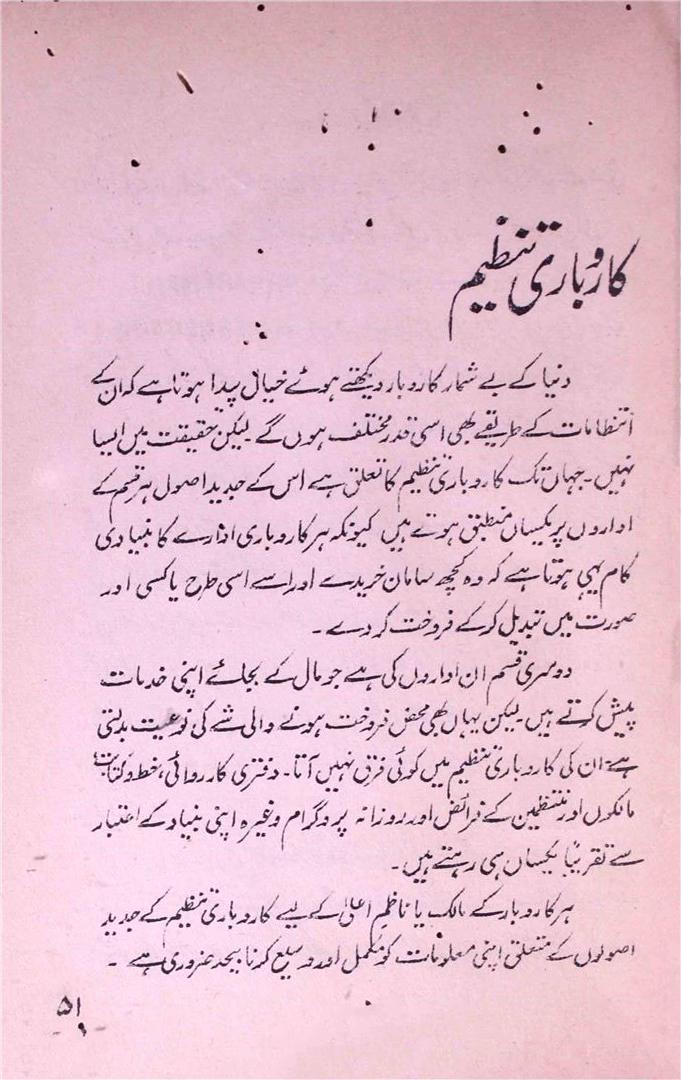 کاروباری تنظیم
دنیا کے بے شمار کاروبار دیکھتے ہوئے خیال پیدا ہوتا ہے کہ ان کے
انتظامات کے طریقے بھی اسی قدر مختلف ہوں گے۔ لیکن حقیقت میں ایسا
نہیں۔ جہاں تک کاروباری تنظیم کا تعلق ہے اس کے جدید اصول ہر قسم کے
اداروں پر یکساں منطبق ہوتے ہیں کیونکہ ہر کاروباری ادارے کا بنیادی
کام یہی ہوتا ہے کہ وہ کچھ سامان خریدے اور اسے اسی طرح یا کسی اور
صورت میں تبدیل کر کے فروخت کر دے۔
دوسری قسم ان اداروں کی ہے جو مال کے بجائے اپنی خدمات
پیش کرتے ہیں۔ لیکن یہاں بھی محض فروخت ہونے والی شے کی نوعیت بدلتی
ہے۔ ان کی کاروباری تنظیم میں کوئی فرق نہیں آتا۔ دفتری کارروائی، خط و کتابت
مالکوں اور منتظمین کے فرائض اور روزانہ پروگرام وغیرہ اپنی بنیاد کے اعتبار
سے تقریباً یکساں ہی رہتے ہیں۔
ہر کاروبار کے مالک یا ناظم اعلیٰ کے لیے کاروباری تنظیم کے جدید
اصولوں کے متعلق اپنی معلومات کو مکمل اور وسیع کرنا بیحد ضروری ہے۔
۵۱
۹